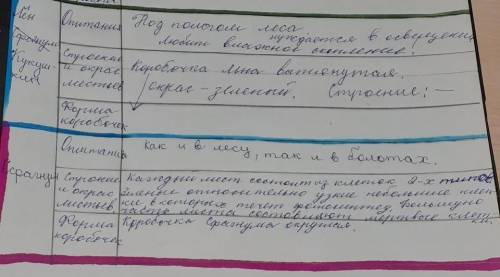 лён
Сфагнум
Кукуш-
кин
Опитания
Под пологом леса
нуждается в освещении
любит влажное
Строение
и окрас
листьев
Коробочка льна вытянутая.
окрас - зеленый. Строение: —
Форма
коробочек
Опитания
Как и в лесу, так и в болотах.
Сфагнум
Строение
и окрас
листьев
Каждый лист состоит из клеток 2-х типов
зеленые относительно узкие небольшие клет-
ки в которых течет фотосинтез. Большую
часть листа составляют мертвые клет-
ки.
Форма
коробочек
Коробочка Сфагнума округлая.